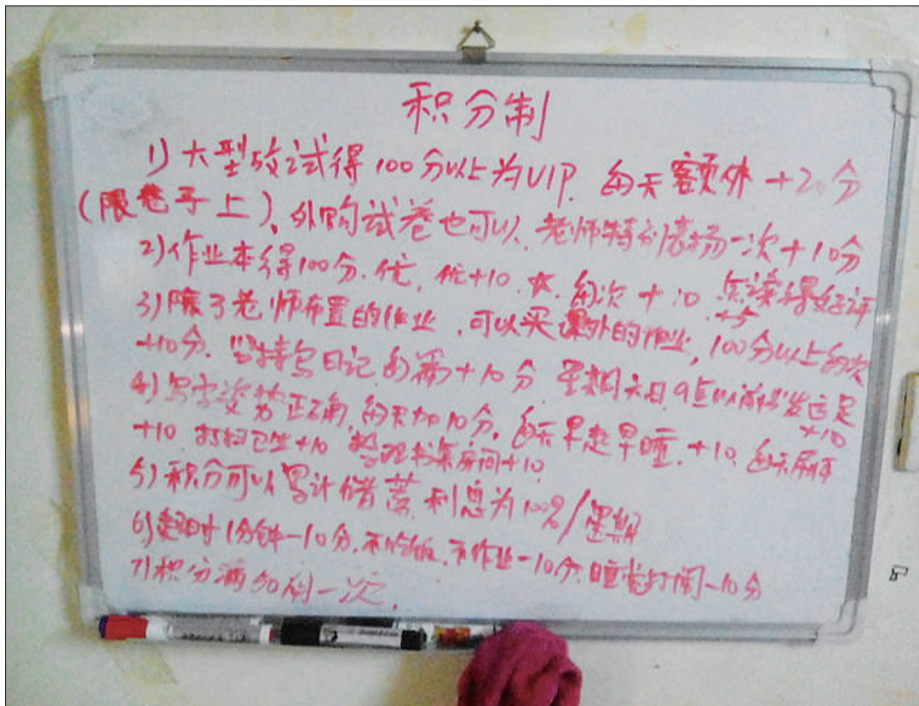 积分制
1) 大型考试得100分以上为VIP. 每天额外+20分
(限卷子上)。外购试卷也可以、老师特别表扬一次+10分
2)作业本得100分.优, 优+10. 每次+10 怎读得好评
+5
3)除了老师布置的作业,可以买课外的作业, 100分以上每次
+10分. 坚持写日记每篇+10分 星期天日9点以前出发远足
+10
4)写字姿势正确, 每天加10分。每天早起早睡.+10. 每天刷牙
+10 打扫卫生+10 整理书桌房间+10
5)积分可以累计储蓄 利息为100%/星期
6)超时1分钟-10分.不吃饭.不作业-10分.睡觉打闹-10分
7)积分满 一次.